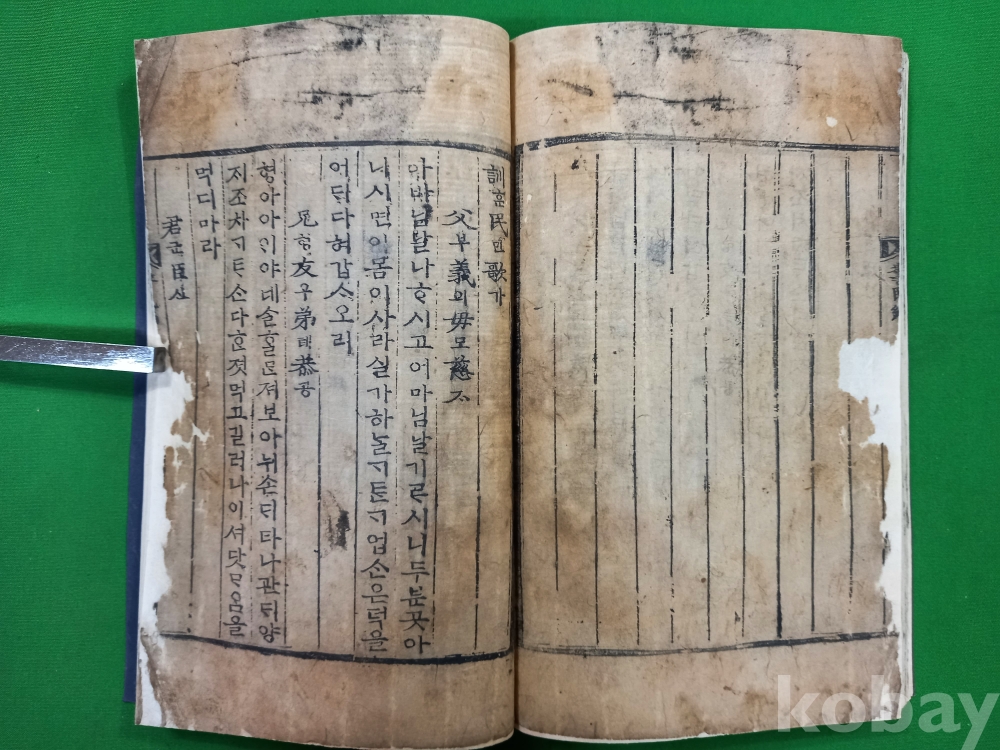 訓훈民민歌가
父부義의毋모慈ᄌᆞ
아바님날나ᄒᆞ시고어마님날기ᄅᆞ시니두분곳아
니시면이몸이사라실가하ᄂᆞᆯᄀᆞᄐᆞᆫᄀᆞ업ᄉᆞᆫ은덕을
어ᄃᆡ다혀갑ᄉᆞ오리
兄형友우弟뎨恭공
형아아이야네ᄉᆞᆯᄒᆞᆯᄆᆞᆫ져보아뉘손ᄃᆡ타나관ᄃᆡ양
ᄌᆡ조차ᄀᆞᄐᆞᆫ손다ᄒᆞᆫ졋먹고길러나이셔닷ᄆᆞᄋᆞᆷ을
먹디마라
君군臣신
kobay